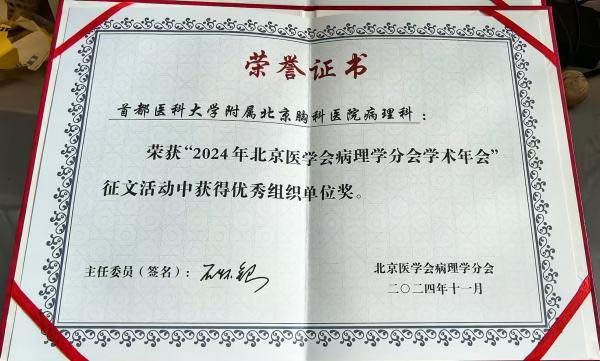 荣誉证书
首都医科大学附属北京胸科医院病理科：
荣获“2024年北京医学会病理学分会学术年会”
征文活动中获得优秀组织单位奖。
主任委员（签名）：
北京医学会病理学分会
二〇二四年十一月